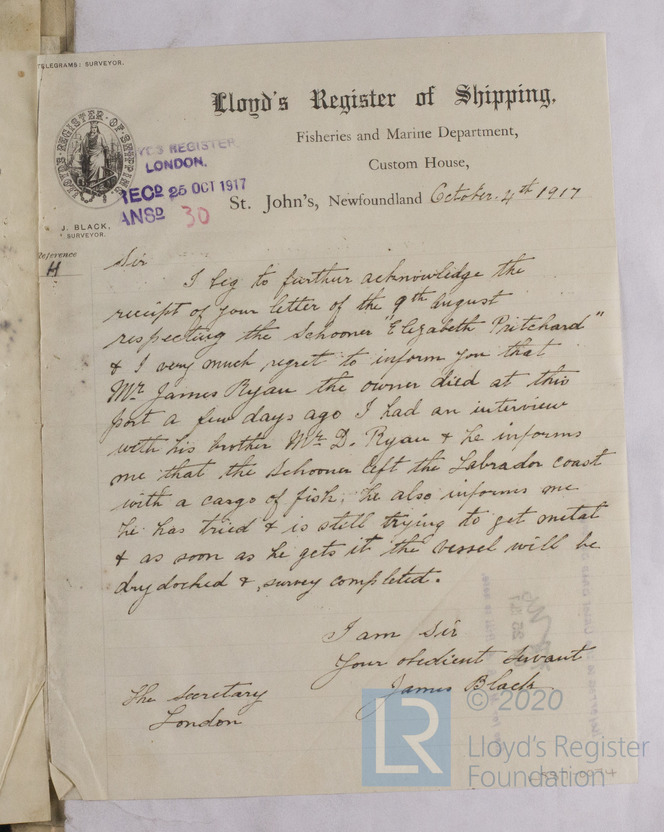 TELEGRAMS: SURVEYOR.
Lloyd's Register of Shipping,
Fisheries and Marine Department,
Custom House,
St. John's, Newfoundland October 4th 1917
LLOYD'S REGISTER OF SHIPPING
REGISTER
LONDON.
RECD 25 OCT 1917
ANSD 30
J. BLACK,
SURVEYOR.
Reference
H
Sir
I beg to further acknowledge the
receipt of your letter of the 9th August
respecting the Schooner "Elizabeth Pritchard"
& I very much regret to inform you that
Mr James Ryan the owner died at this
port a few days ago I had an interview
with his brother Mr D. Ryan & he informs
me that the Schooner left the Labrador coast
with a cargo of fish, he also informs me
he has tried & is still trying to get metal
& as soon as he gets it the vessel will be
dry docked & survey completed.
I am Sir
Your obedient Servant
James Black
The Secretary
London
LR
© 2020
Lloyd's Register
Foundation